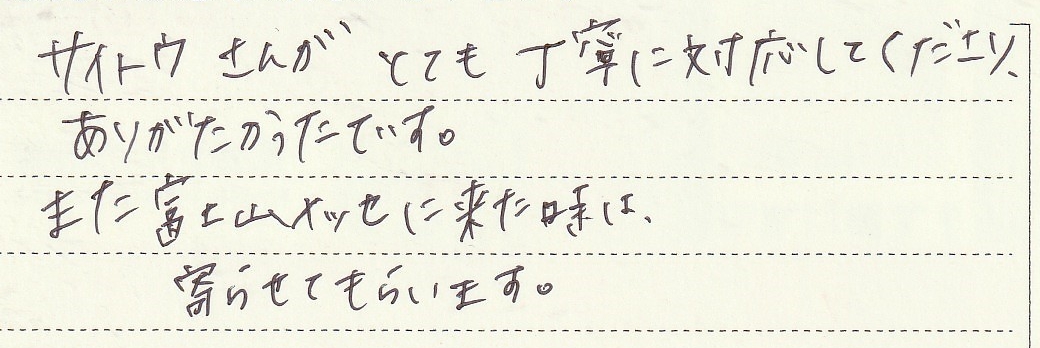 サイトウさんが とても 丁寧に対応してくださり、
ありがたかったです。
また富士山メッセに来た時は、
寄らせてもらいます。